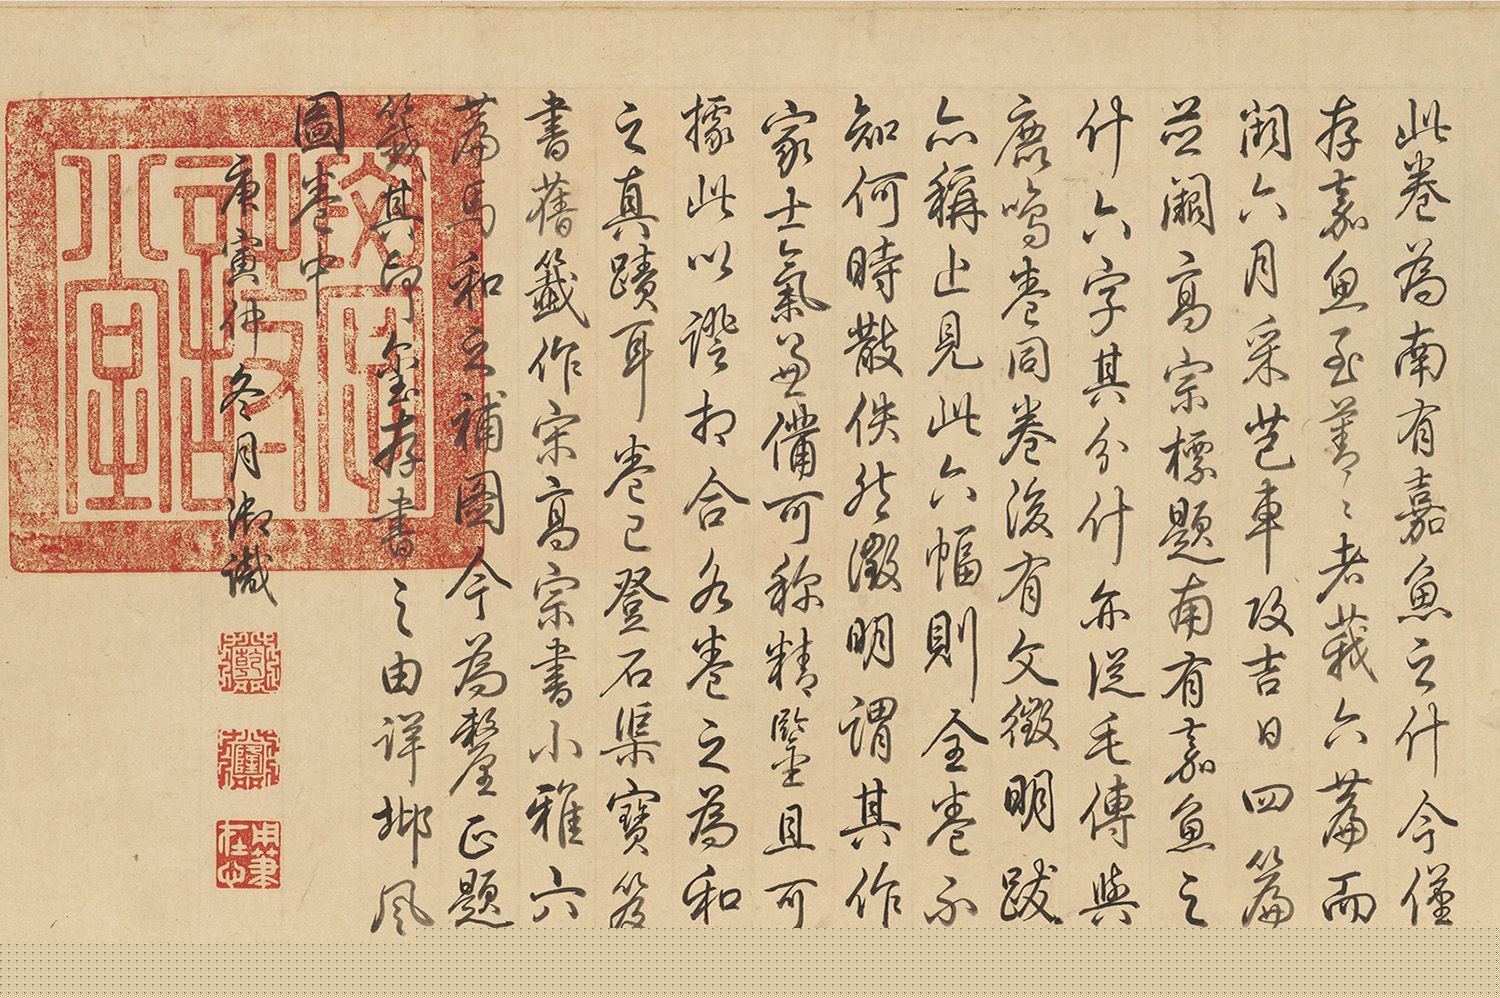 此卷為南有嘉魚之什今僅
存嘉魚至菁〻者莪六篇而
闕六月采芑車攻吉日四篇
並闕高宗標題南有嘉魚之
什六字其分什亦從毛傳與
鹿鳴卷同卷後有文徵明跋
亦稱止見此六幅則全卷不
知何時散佚然徵明謂其作
家士氣兼備可称精鑒且可
據此以證相合各卷之為和
之真蹟耳卷已登石渠寶笈
書舊籤作宋高宗書小雅六
篇馬和之補圖今為釐正題
籤其印璽存書之由詳邶風
圖卷中
庚寅仲冬月御識
乾
隆
用筆在心